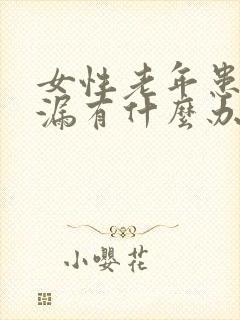 女性老年患
漏有什麼办
小嘤花